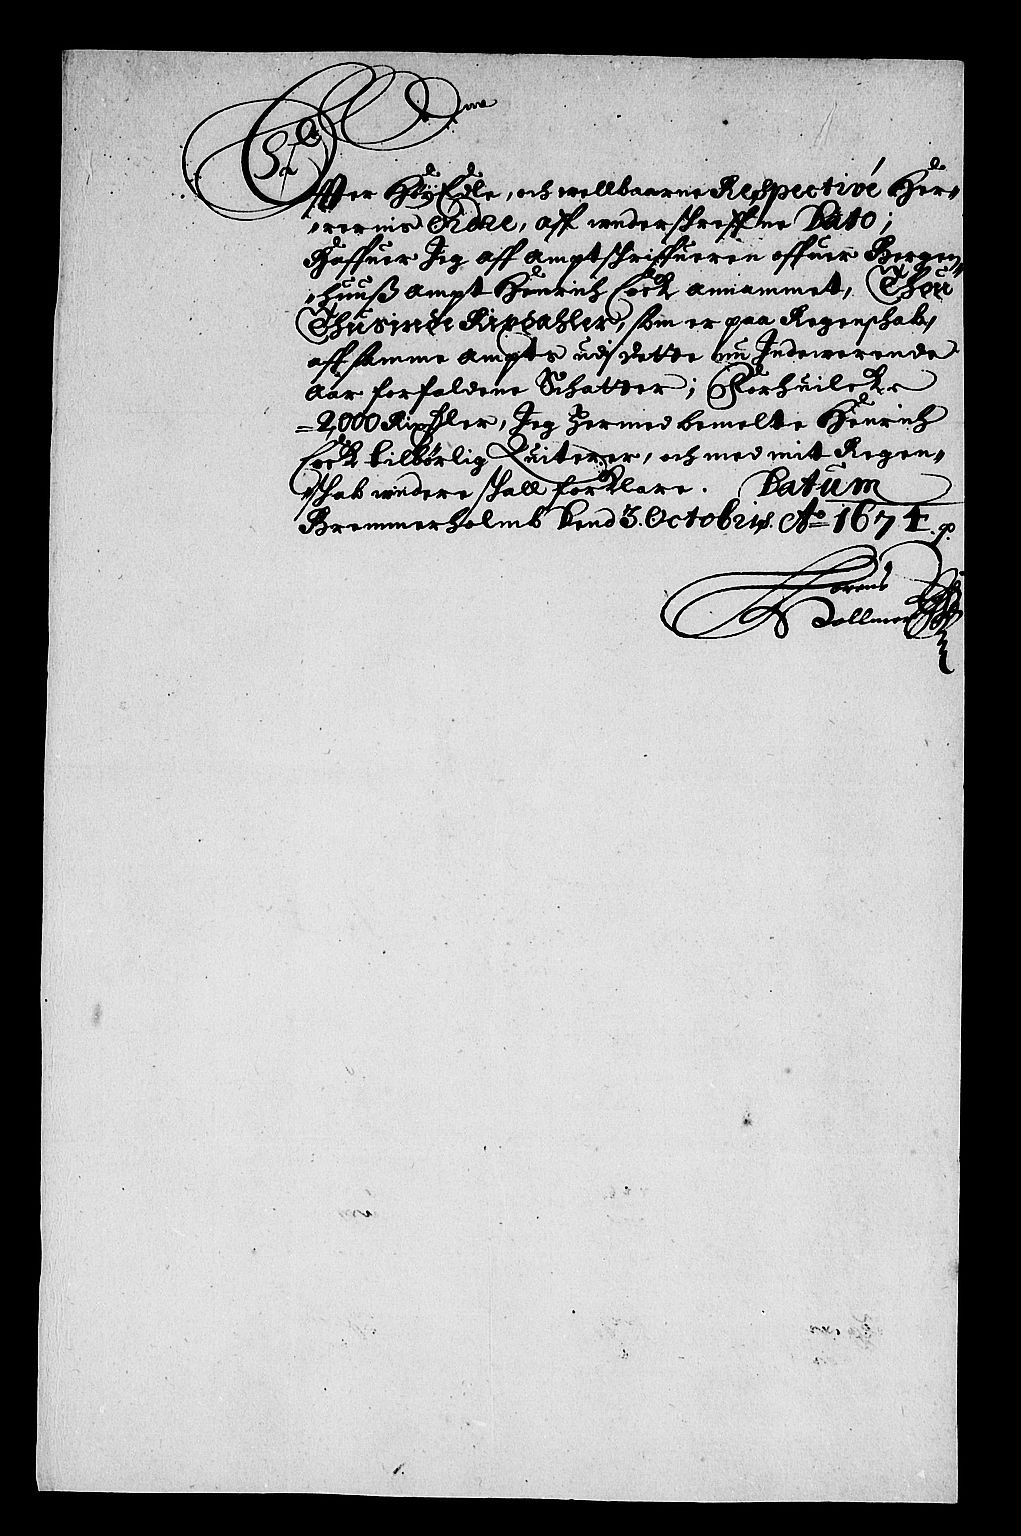 Effter HöyEdle, och wellbaarne Respectivé Her¬
rerins Ordre, aff underschreffne Dato;
Haffuer Jeg aff Amptschriffueren offuer Bergen¬
huuss Ampt Henrich Cock annammet, Thou
Thusinde Rixdahler, som er paa Regenschab,
aff samme Ampts udj dette nu Indewerende
Aar forfaldene Schatter; For huilcke
=2,000 Rixdler, Jeg hermed bemelte Henrich
Cock tilbörlig Quiterer, och med mit Regen¬
schab widere schall forklare. Datum
Bremmerholmb dend 3. Octobris Ao 1674.
Lorens
Vollmer